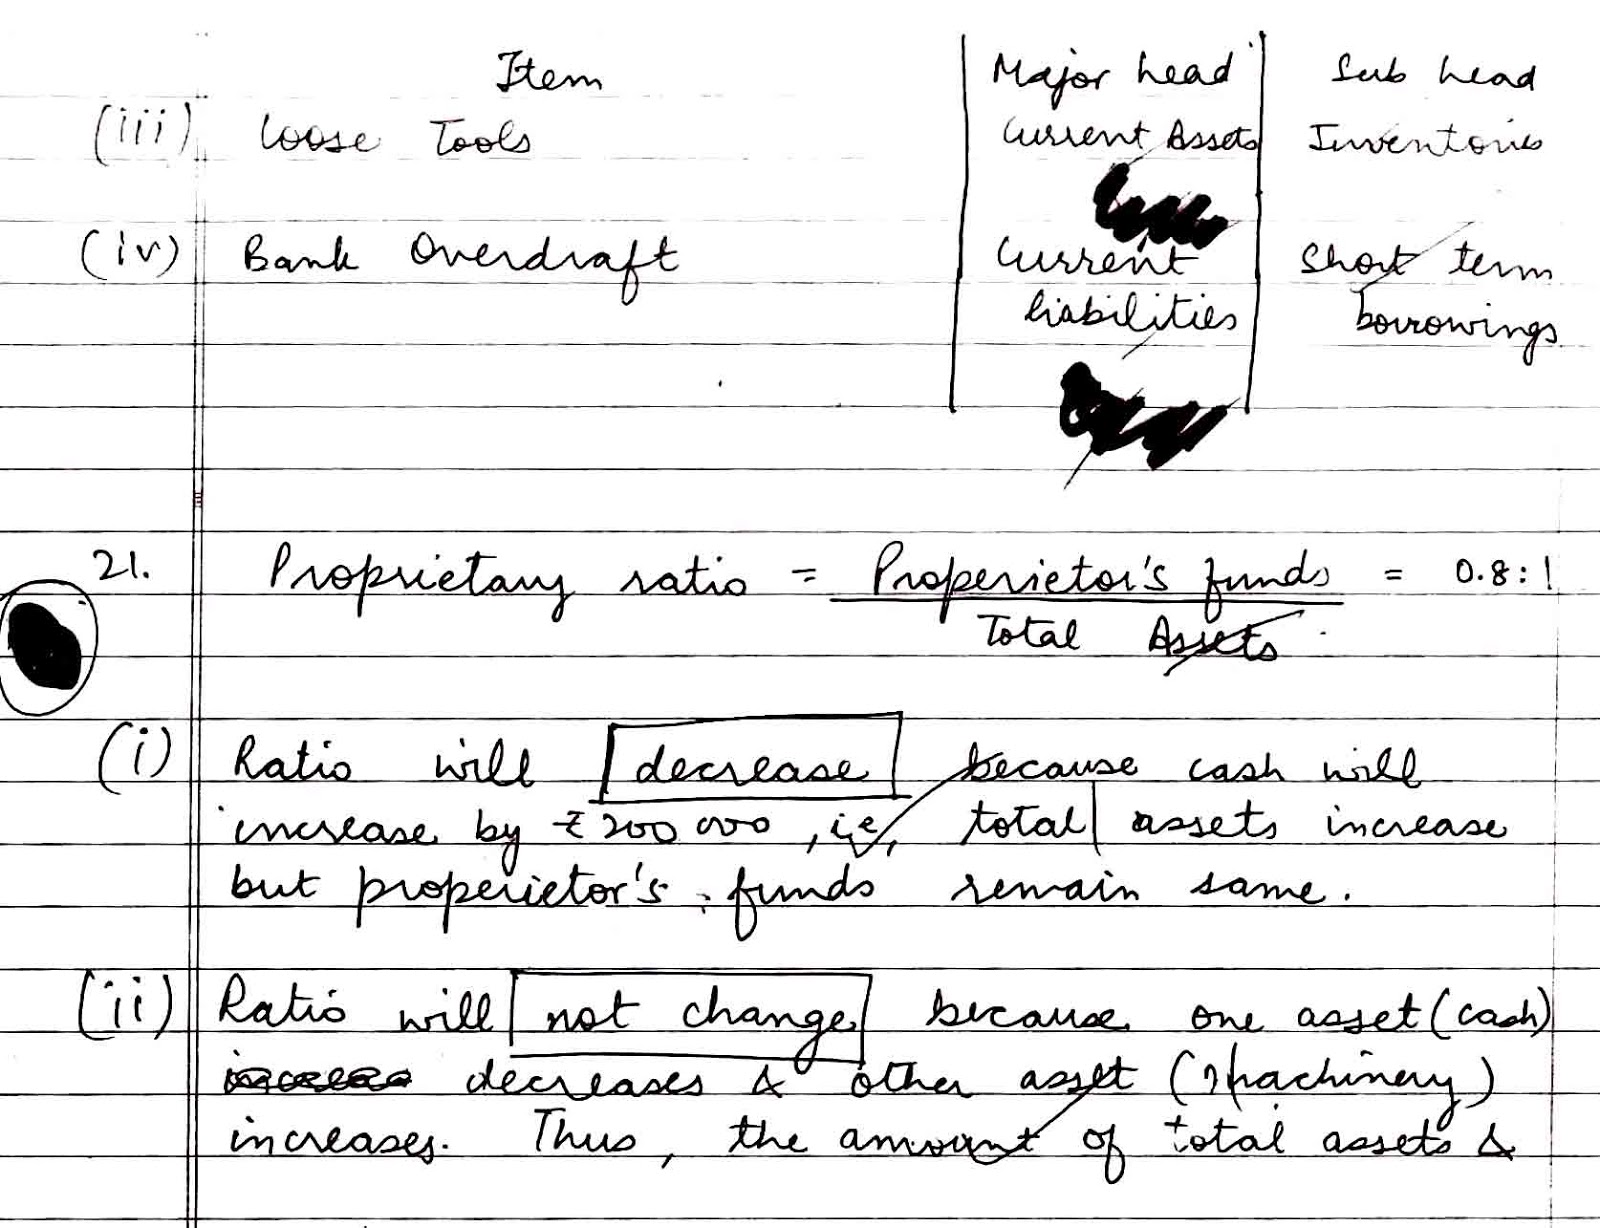 Item Major head Sub head
(iii) Loose Tools Current Assets Inventories
(iv) Bank Overdraft Current Short term
liabilities borrowings
21. Proprietary ratio = Properietor's funds = 0.8:1
Total Assets
(i) Ratio will decrease because cash will
increase by ₹200 000, i.e, total assets increase
but properietor's funds remain same.
(ii) Ratio will not change because one asset (cash)
decreases & other asset (Machinery)
increases. Thus, the amount of total assets &